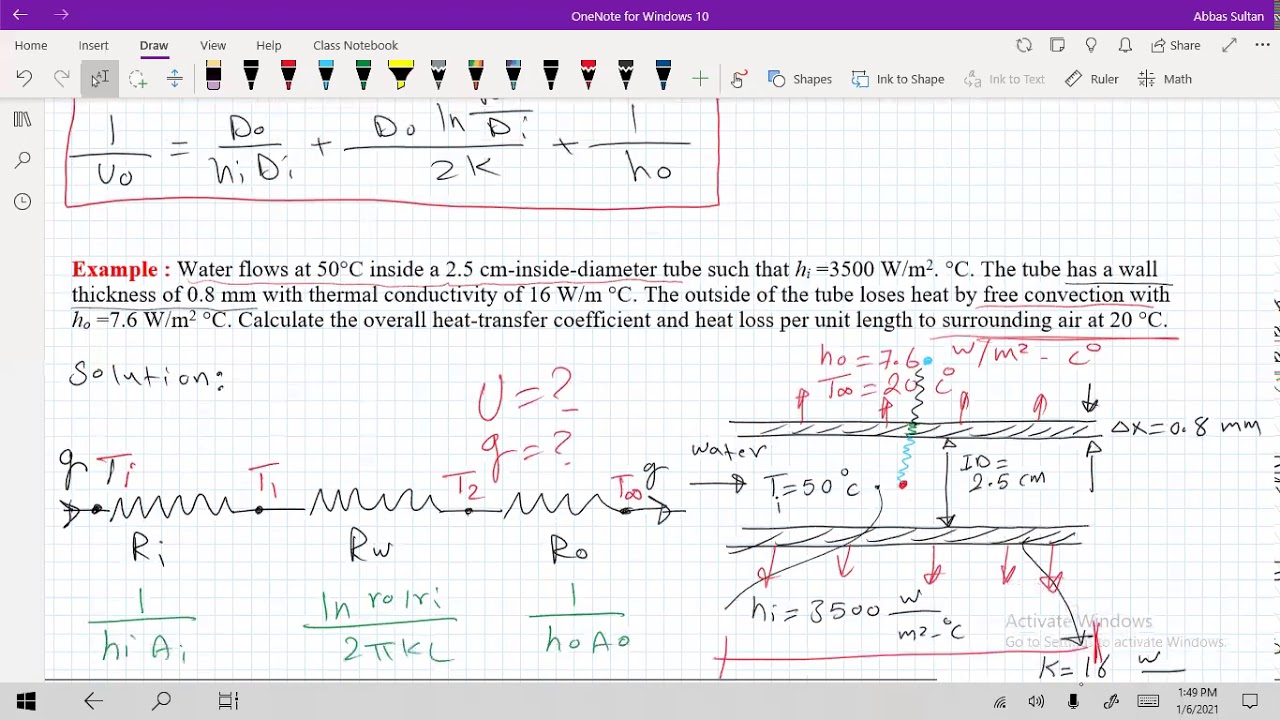 OneNote for Windows 10
Abbas Sultan
Home Insert Draw View Help Class Notebook Share
Shapes Ink to Shape Ink to Text Ruler Math
1/Uo = Do/hi Di + Do ln /Di/2K + 1/ho
Example : Water flows at 50°C inside a 2.5 cm-inside-diameter tube such that hi =3500 W/m². °C. The tube has a wall
thickness of 0.8 mm with thermal conductivity of 16 W/m °C. The outside of the tube loses heat by free convection with
ho =7.6 W/m² °C. Calculate the overall heat-transfer coefficient and heat loss per unit length to surrounding air at 20 °C.
Solution:
U = ?
q = ?
q Ti T1 T2 T∞ q
Ri Rw Ro
1/hi Ai
ln ro/ri/2πKL
1/ho Ao
ho = 7.6 w/m² - c°
T∞ = 20 c°
Δx = 0.8 mm
water
Ti = 50°c
ID =
2.5 cm
hi = 3500 w/m²-°c
K = 16 w
Activate Windows
Go to Settings to activate Windows.
1:49 PM
1/6/2021